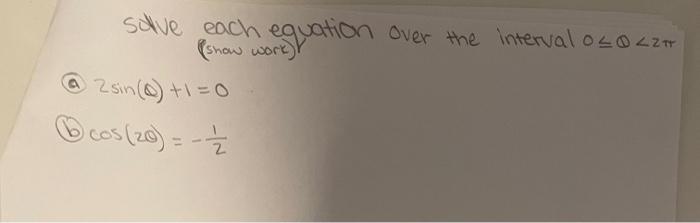 solve each equation over the interval 0≤θ<2π
(show work)
ⓐ 2sin(θ)+1=0
ⓑ cos(2θ) = -1/2